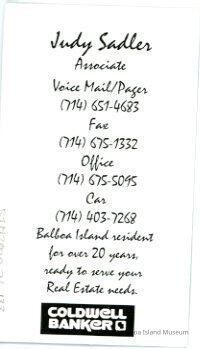 Judy Sadler
Associate
Voice Mail/Pager
(714) 651-4683
Fax
(714) 675-1332
Office
(714) 675-5095
Car
(714) 403-7268
Balboa Island resident
for over 20 years,
ready to serve your
Real Estate needs.
COLDWELL
BANKER
Island Museum